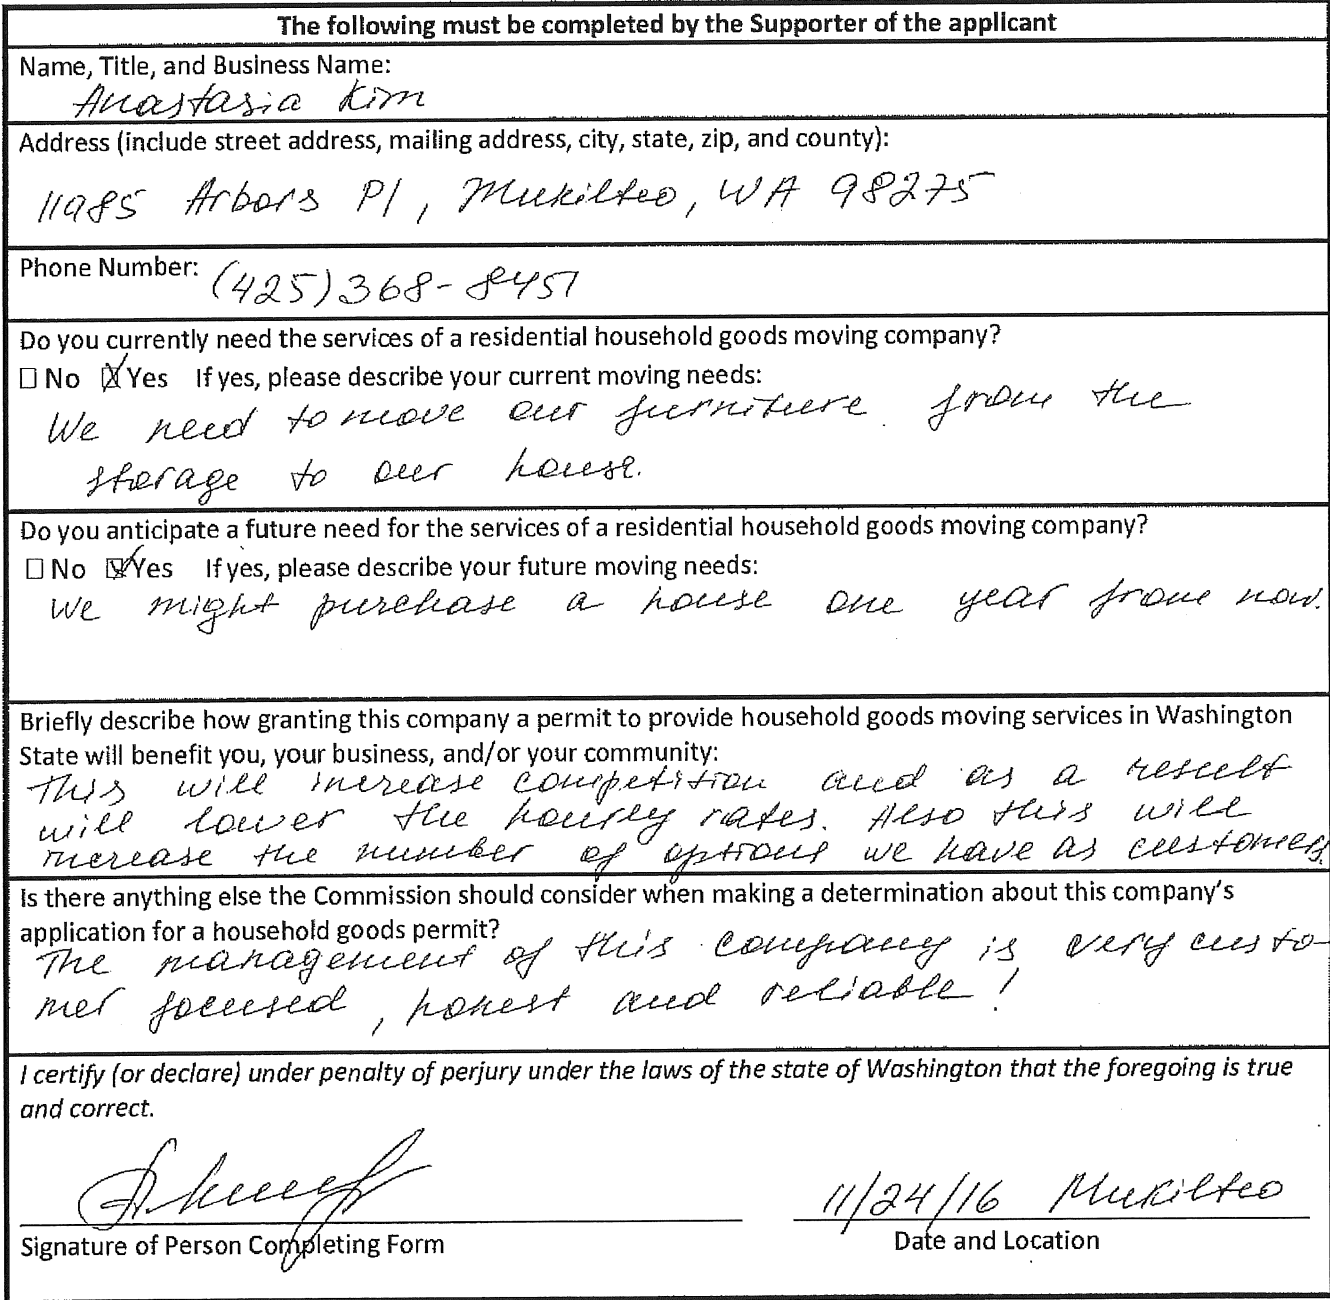 The following must be completed by the Supporter of the applicant
Name, Title, and Business Name:
Anastasia Kim
Address (include street address, mailing address, city, state, zip, and county):
11985 Arbors Pl, Mukilteo, WA 98275
Phone Number: (425)368-8451
Do you currently need the services of a residential household goods moving company?
☐ No ☒ Yes If yes, please describe your current moving needs:
We need to move our furniture from the
storage to our house.
Do you anticipate a future need for the services of a residential household goods moving company?
☐ No ☒ Yes If yes, please describe your future moving needs:
We might purchase a house one year from now.
Briefly describe how granting this company a permit to provide household goods moving services in Washington
State will benefit you, your business, and/or your community:
This will increase competition and as a result
will lower the hourly rates. Also this will
increase the number of options we have as customers.
Is there anything else the Commission should consider when making a determination about this company's
application for a household goods permit?
The management of this company is very custo-
mer focused, honest and reliable!
I certify (or declare) under penalty of perjury under the laws of the state of Washington that the foregoing is true
and correct.
11/24/16 Mukilteo
Signature of Person Completing Form
Date and Location